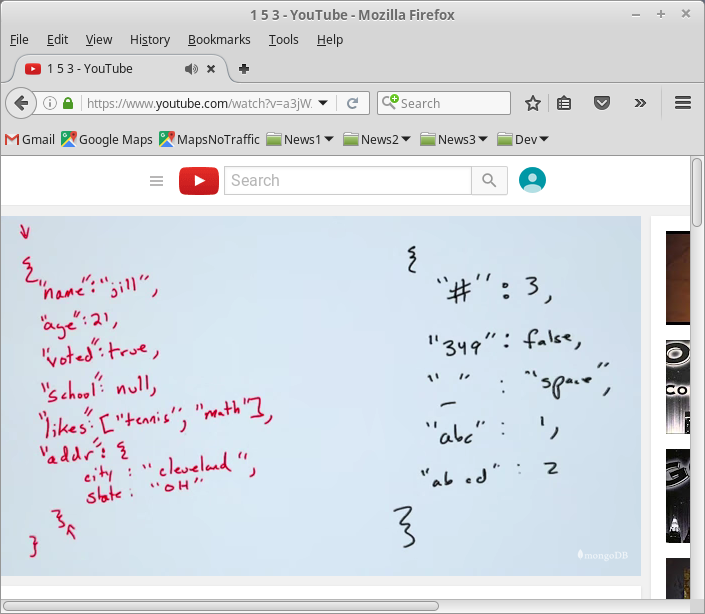 1 5 3 - YouTube - Mozilla Firefox
File Edit View History Bookmarks Tools Help
1 5 3 - YouTube
https://www.youtube.com/watch?v=a3jW Search
Gmail Google Maps MapsNoTraffic News1 News2 News3 Dev
Search
{
"name":"jill",
"age":21,
"voted":true,
"school": null,
"likes":["tennis", "math"],
"addr": {
city : "cleveland",
state: "OH"
}
}
{
"#" : 3,
"349": false,
"_" : "space",
"abc" : 1,
"ab cd" : 2
}
mongoDB
CO